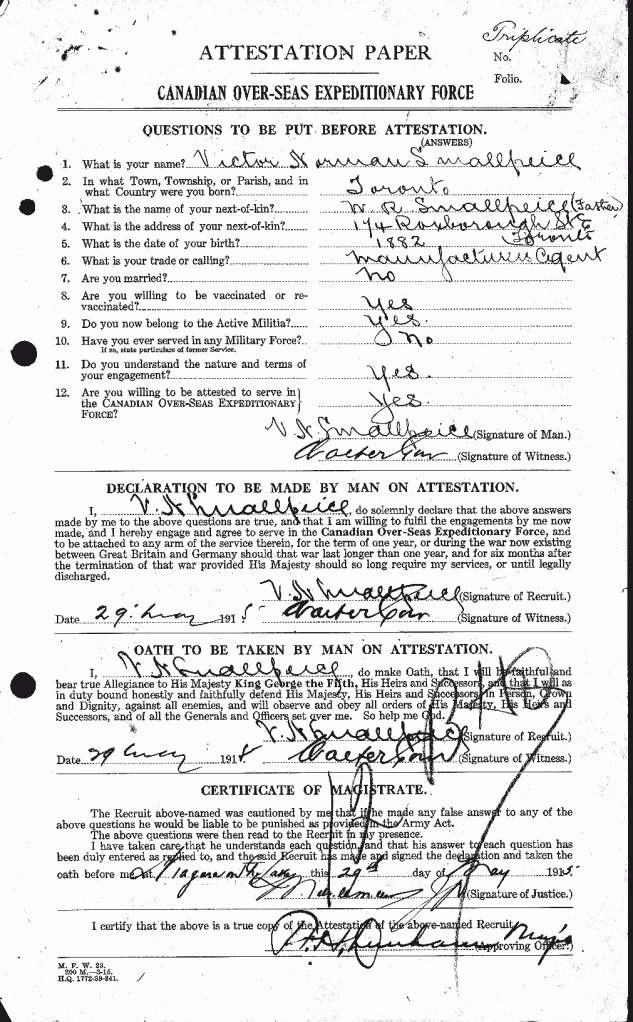 Triplicate
ATTESTATION PAPER
No.
Folio.
CANADIAN OVER-SEAS EXPEDITIONARY FORCE
QUESTIONS TO BE PUT BEFORE ATTESTATION.
(ANSWERS)
1. What is your name? Victor Norman Smallpeice
2. In what Town, Township, or Parish, and in
what Country were you born? Toronto
3. What is the name of your next-of-kin? W. R. Smallpeice (Father)
4. What is the address of your next-of-kin? 174 Roxborough St E
Toronto
5. What is the date of your birth? 1882
6. What is your trade or calling? Manufacturers Agent
7. Are you married? No
8. Are you willing to be vaccinated or re-
vaccinated? Yes
9. Do you now belong to the Active Militia? Yes.
10. Have you ever served in any Military Force? No
If so, state particulars of former Service.
11. Do you understand the nature and terms of
your engagement? Yes.
12. Are you willing to be attested to serve in
the CANADIAN OVER-SEAS EXPEDITIONARY
FORCE? Yes.
V. N Smallpeice (Signature of Man.)
(Signature of Witness.)
DECLARATION TO BE MADE BY MAN ON ATTESTATION.
I, V. N Smallpeice, do solemnly declare that the above answers
made by me to the above questions are true, and that I am willing to fulfil the engagements by me now
made, and I hereby engage and agree to serve in the Canadian Over-Seas Expeditionary Force, and
to be attached to any arm of the service therein, for the term of one year, or during the war now existing
between Great Britain and Germany should that war last longer than one year, and for six months after
the termination of that war provided His Majesty should so long require my services, or until legally
discharged.
V. N Smallpeice (Signature of Recruit.)
Date 29 May 1915 (Signature of Witness.)
OATH TO BE TAKEN BY MAN ON ATTESTATION.
I, V. N Smallpeice, do make Oath, that I will be faithful and
bear true Allegiance to His Majesty King George the Fifth, His Heirs and Successors, and that I will as
in duty bound honestly and faithfully defend His Majesty, His Heirs and Successors, in Person, Crown
and Dignity, against all enemies, and will observe and obey all orders of His Majesty, His Heirs and
Successors, and of all the Generals and Officers set over me. So help me God.
V. N Smallpeice (Signature of Recruit.)
Date 29 May 1915 (Signature of Witness.)
CERTIFICATE OF MAGISTRATE.
The Recruit above-named was cautioned by me that if he made any false answer to any of the
above questions he would be liable to be punished as provided in the Army Act.
The above questions were then read to the Recruit in my presence.
I have taken care that he understands each question, and that his answer to each question has
been duly entered as replied to, and the said Recruit has made and signed the declaration and taken the
oath before me at Niagara on the Lake this 29th day of May 1915
(Signature of Justice.)
I certify that the above is a true copy of the Attestation of the above-named Recruit.
Major
(Approving Officer.)
M. F. W. 23.
200 M.—3-15.
H.Q. 1772-39-841.